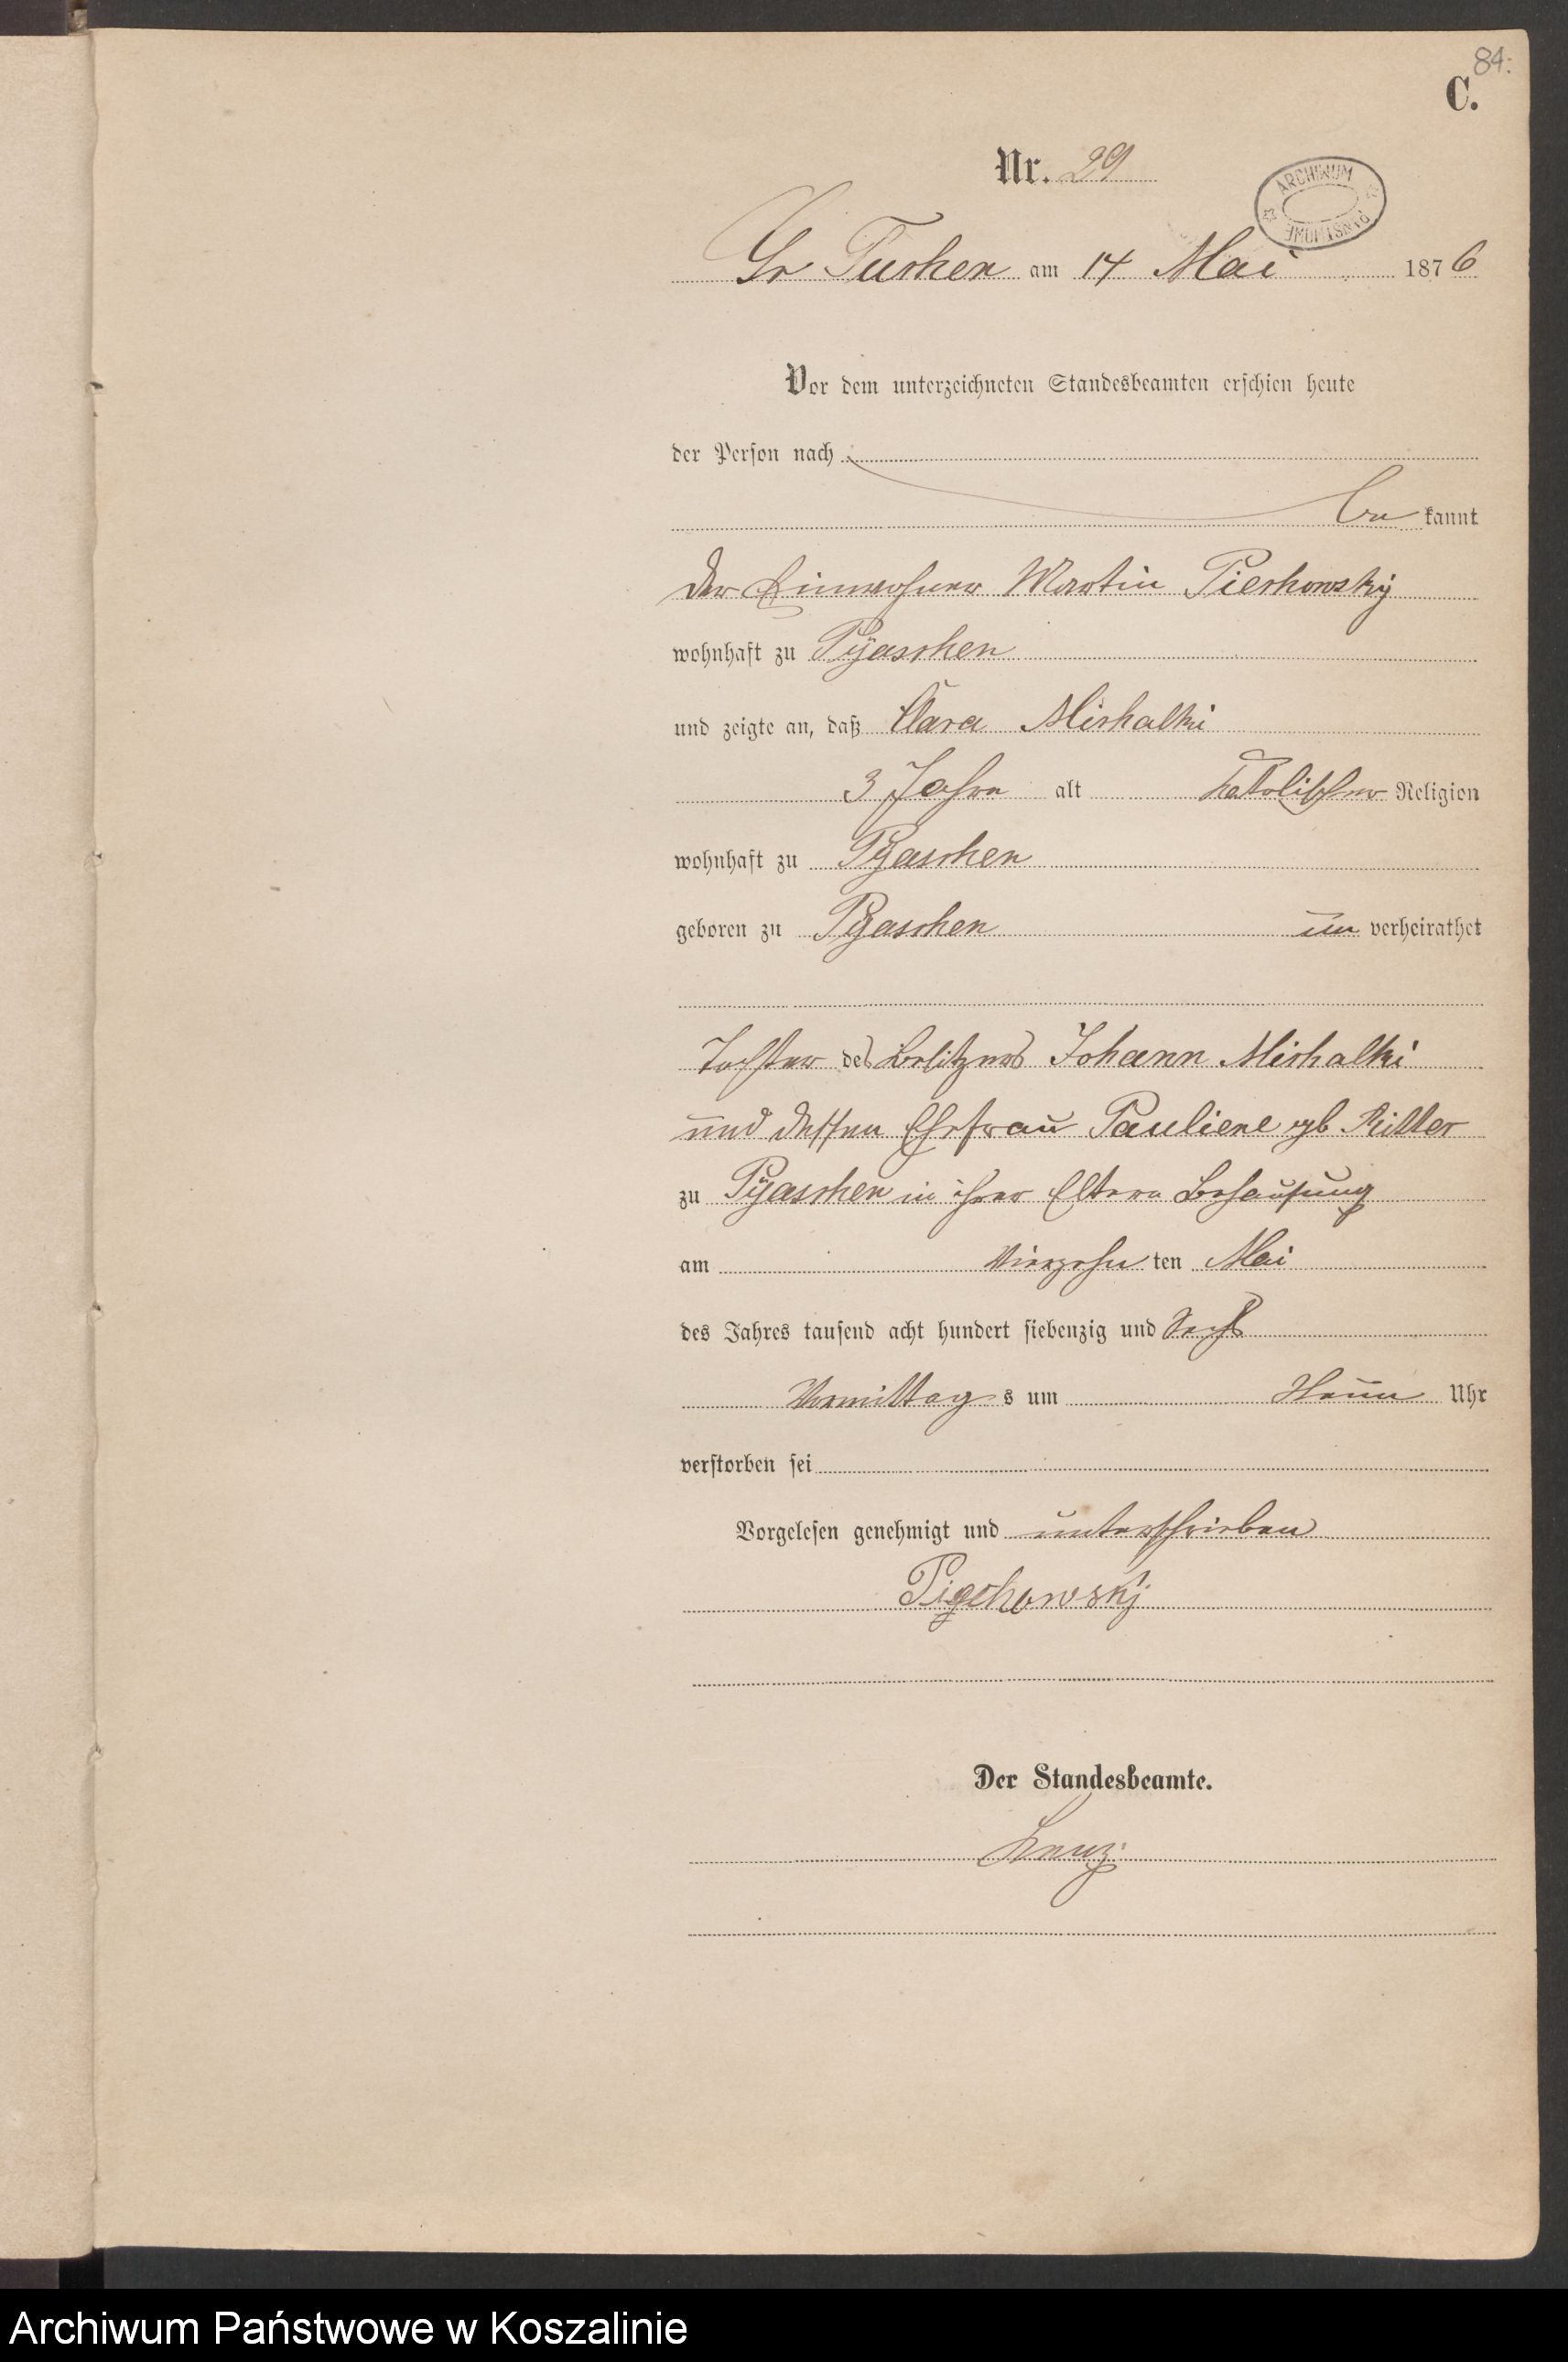 84.
C.
Nr. 29
ARCHIWUM PAŃSTWOWE
Gr Tuchen am 14 Mai 1876
Vor dem unterzeichneten Standesbeamten erschien heute
der Person nach
be kannt
der Einwohner Martin Piechowsky
wohnhaft zu Pÿaschen
und zeigte an, daß Clara Michalki
3 Jahre alt katolischer Religion
wohnhaft zu Pÿaschen
geboren zu Pÿaschen un verheirathet
Tochter des Besitzers Johann Michalki
und dessen Ehefrau Pauliene geb Ritter
zu Pÿaschen in ihrer Eltern Behausung
am Vierzehn ten Mai
des Jahres tausend acht hundert siebenzig und Sechs
Vormittag s um Neun Uhr
verstorben sei
Vorgelesen genehmigt und unterschrieben
Piechowskj
Der Standesbeamte.
Archiwum Państwowe w Koszalinie